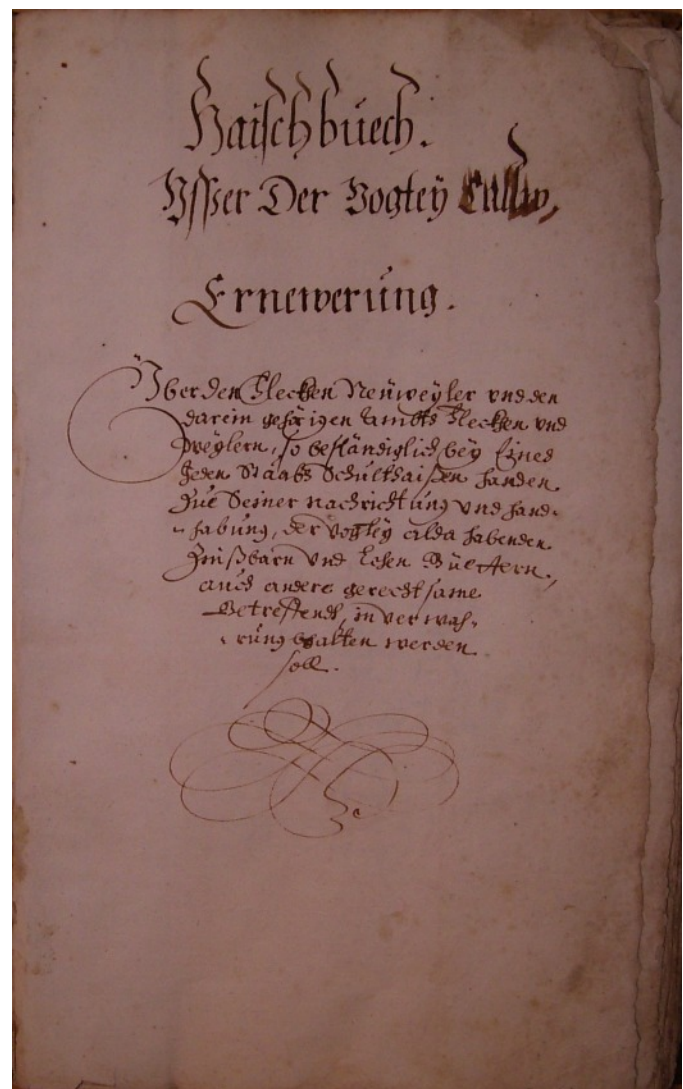 Haischbuech.
Vsser Der Vogteÿ Callw,
Ernewerung.
Vber den Fleckhen Neüweÿler vnd den
darein gehörigen Ambts Flecken vnd
Weÿlern, so beständiglich beÿ Eines
Jeden Staabs Schulthaißen handen
Zue Seiner nachrichtung vnd hand-
habung, der Vogteÿ alda habenden
Zinßbarn vnd Lehen Güettern,
auch andere gerechtsame
Betreffendt, in verwah-
rung bhalten werden
soll.